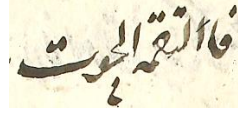 فالتقمه الحوت